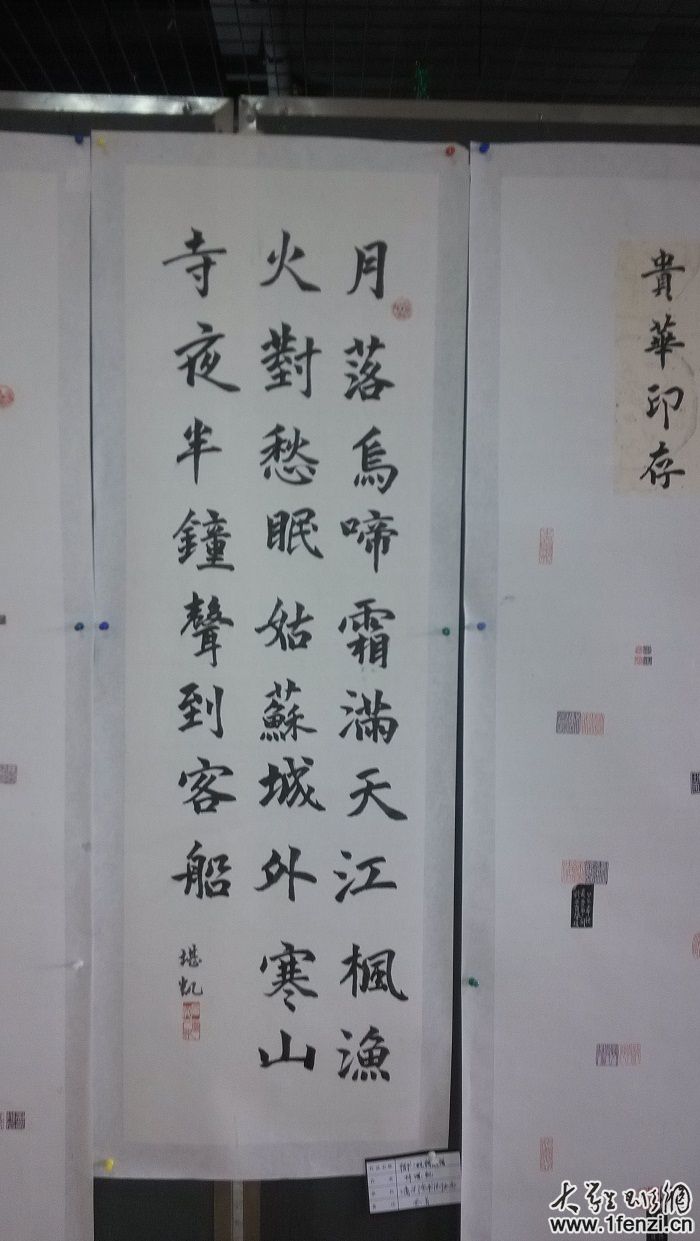 月落烏啼霜滿天江楓漁
火對愁眠姑蘇城外寒山
寺夜半鐘聲到客船
堪凱
貴華印存
大学生班网
www.1fenzi.cn